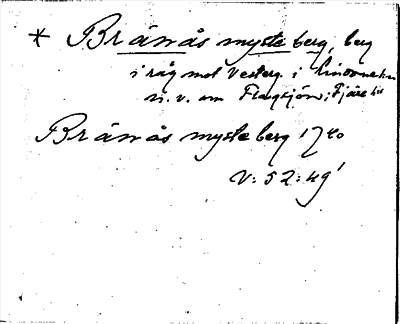 * Bränås myste berg, berg
i råg mot Vesterg. i Lindome sn
n. v. om Flagsjön; Fjäre hd
Bränås myste berg 1740
V: 52: 49'